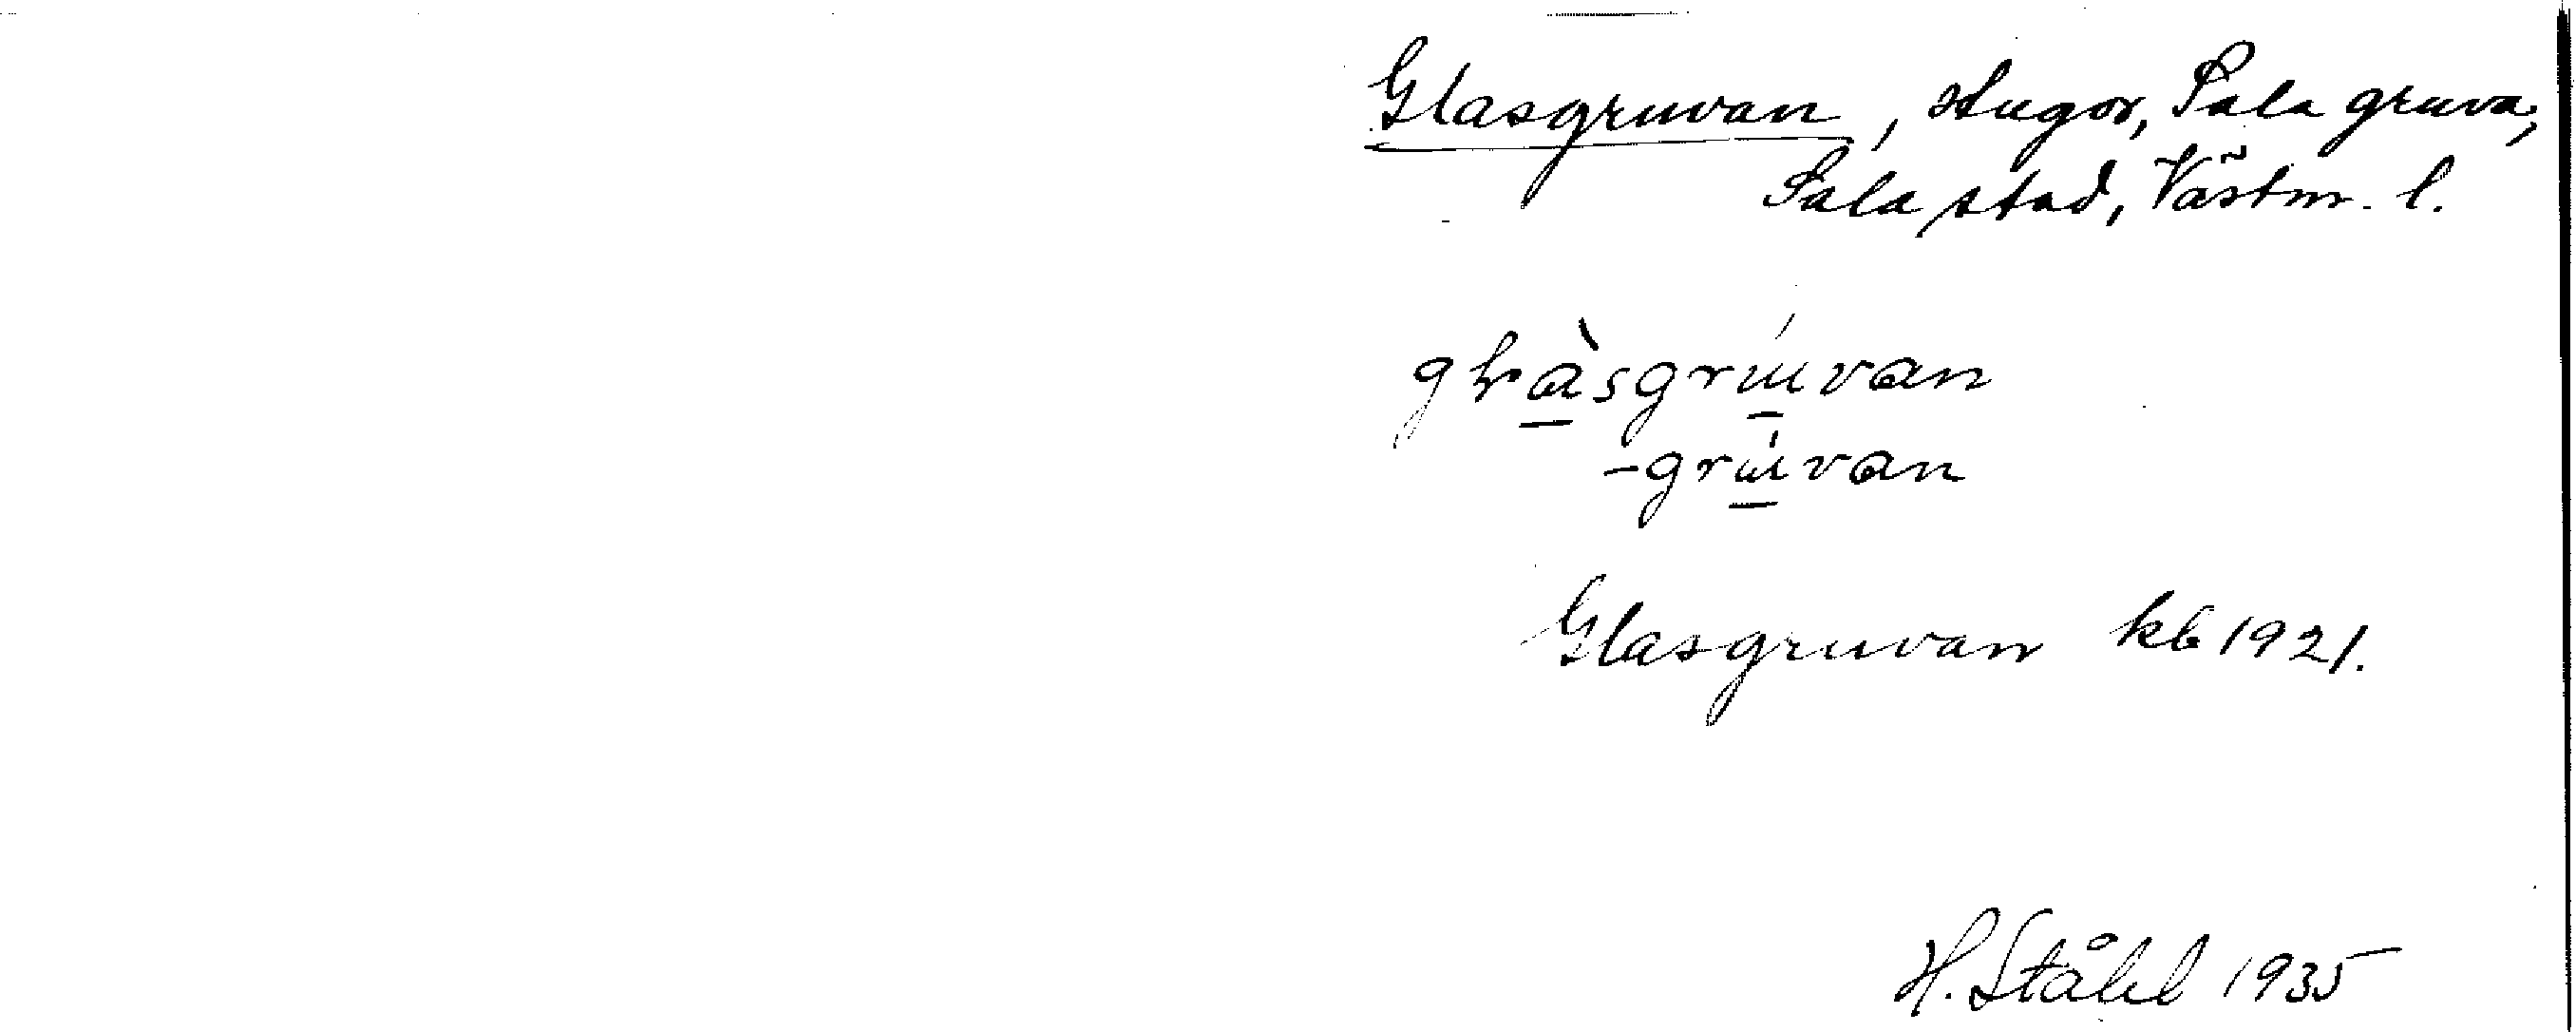 Glasgruvan, stugor, Sala gruva,
Sala stad, Västm. l.
glàsgrúvan
-grúvan
Glasgruvan kb 1921.
H. Ståhl 1935